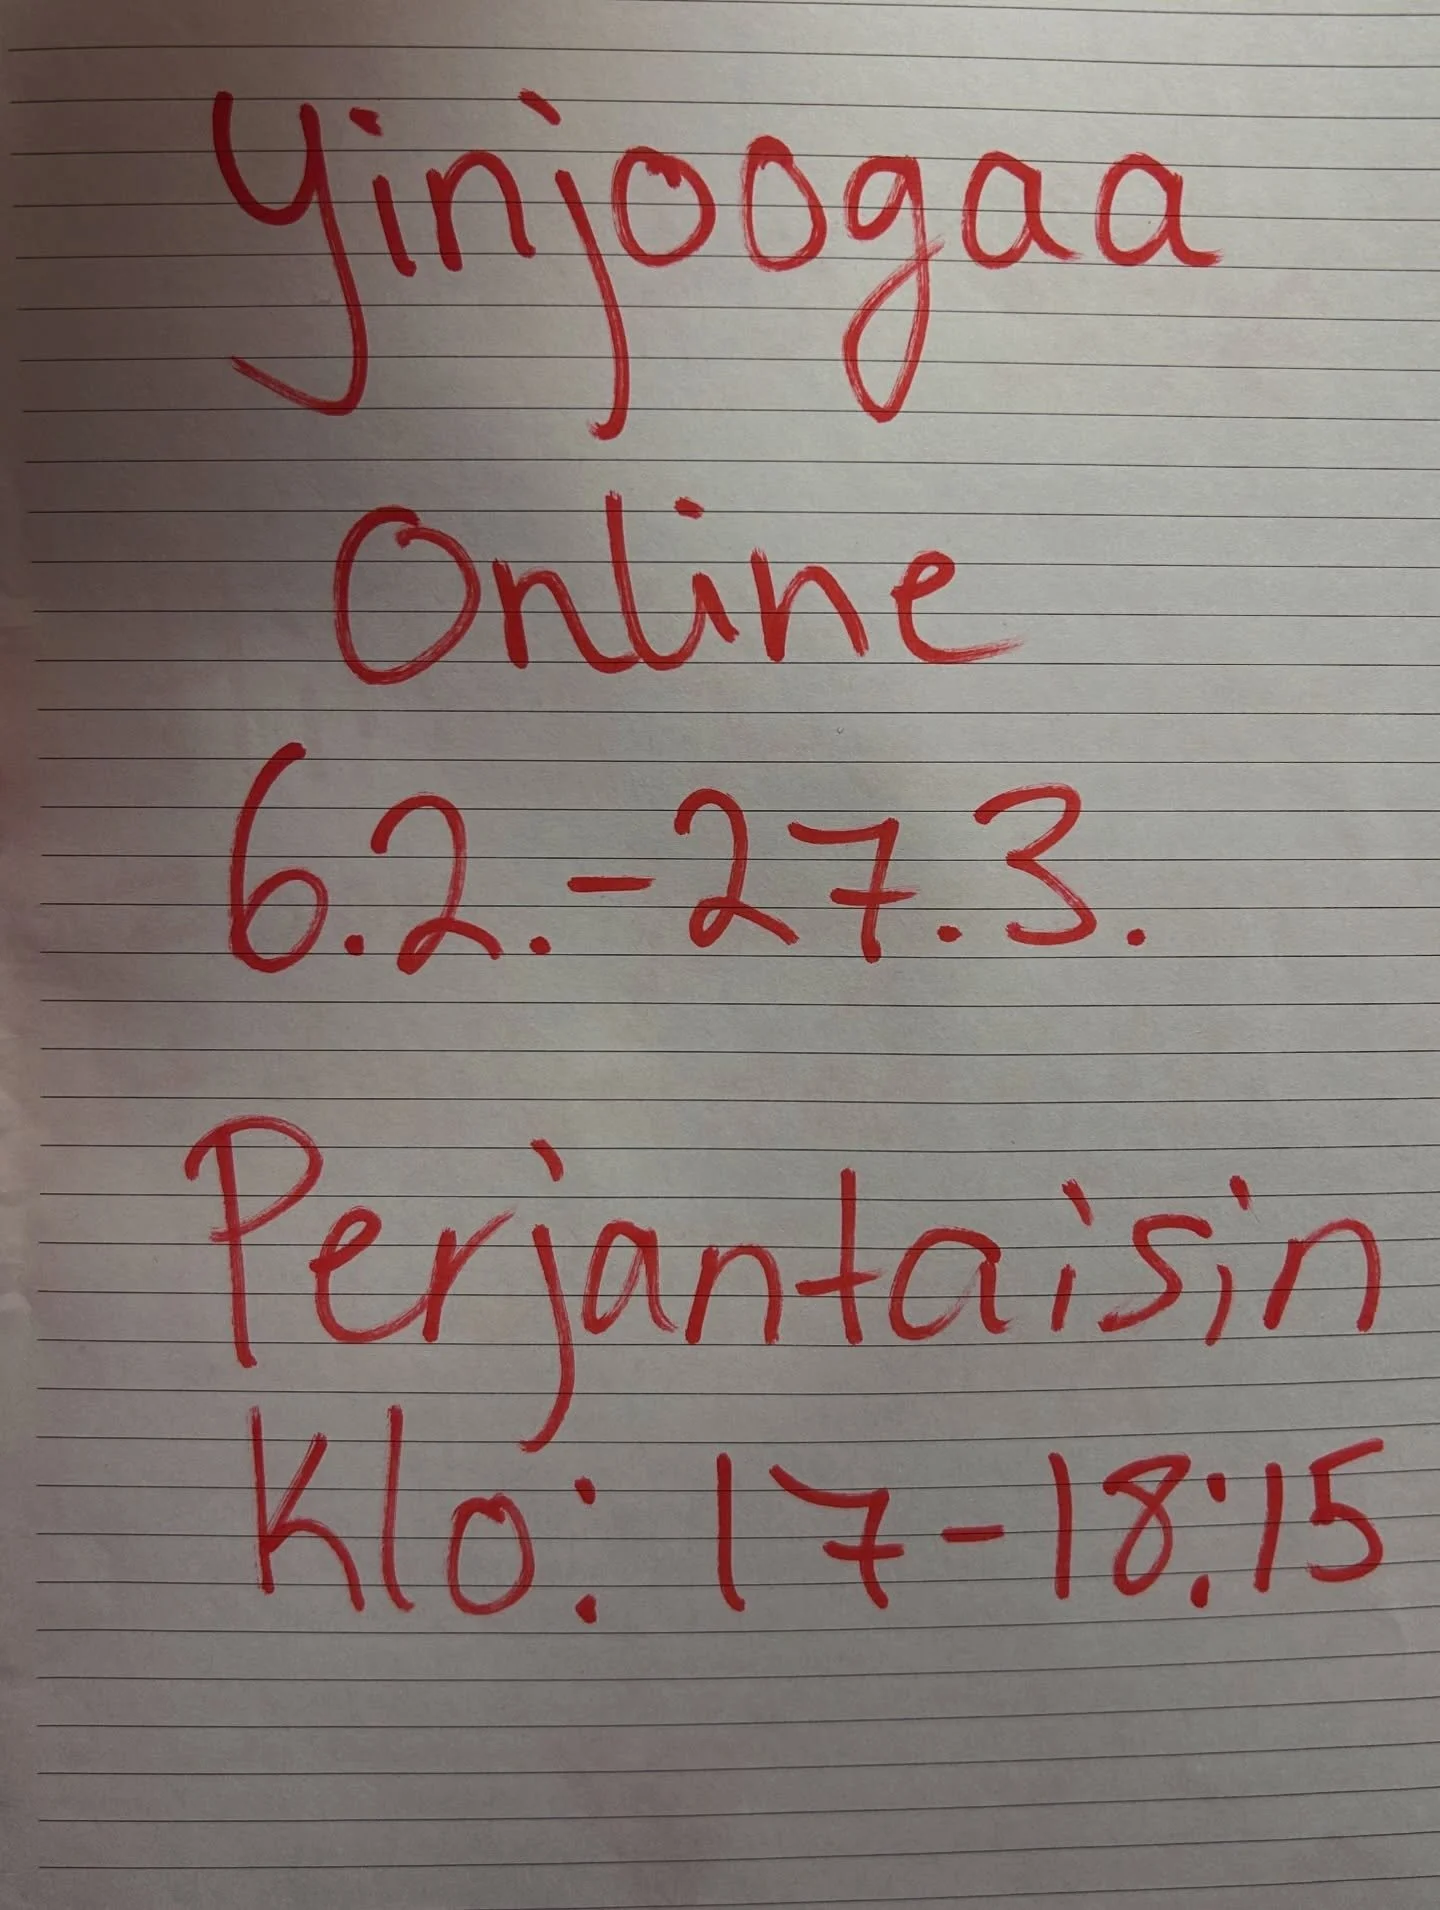 Yinjoogaa
Online
6.2.-27.3.
Perjantaisin
Klo: 17-18:15